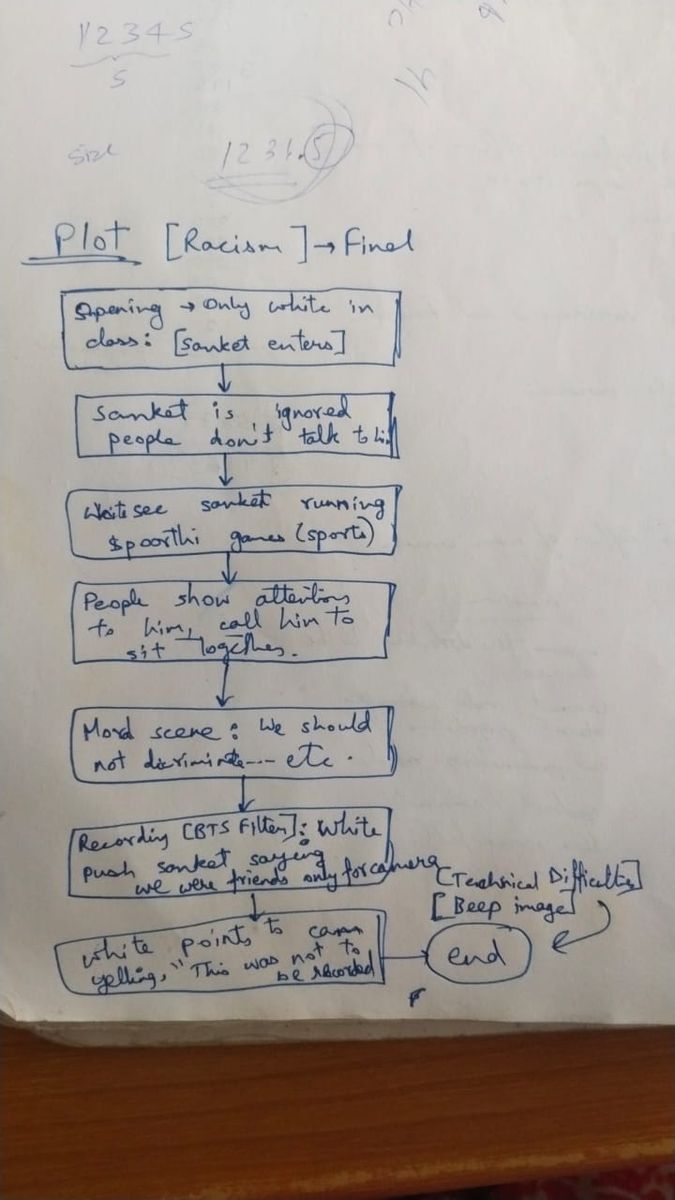 12345
5
size
1234.5
Plot [Racism] → Final
Opening → Only white in
class: [Sanket enters]
Sanket is ignored
people don't talk to hi
see sanket running
Spoorthi games (sports)
People show attention
to him, call him to
sit together.
Moral scene: We should
not discriminate---- etc.
Recording [BTS Filter]: White
push sanket saying
we were friends only for camera
[Technical Difficulties]
[Beep image]
white points to cam
yelling, "This was not to
be recorded
end